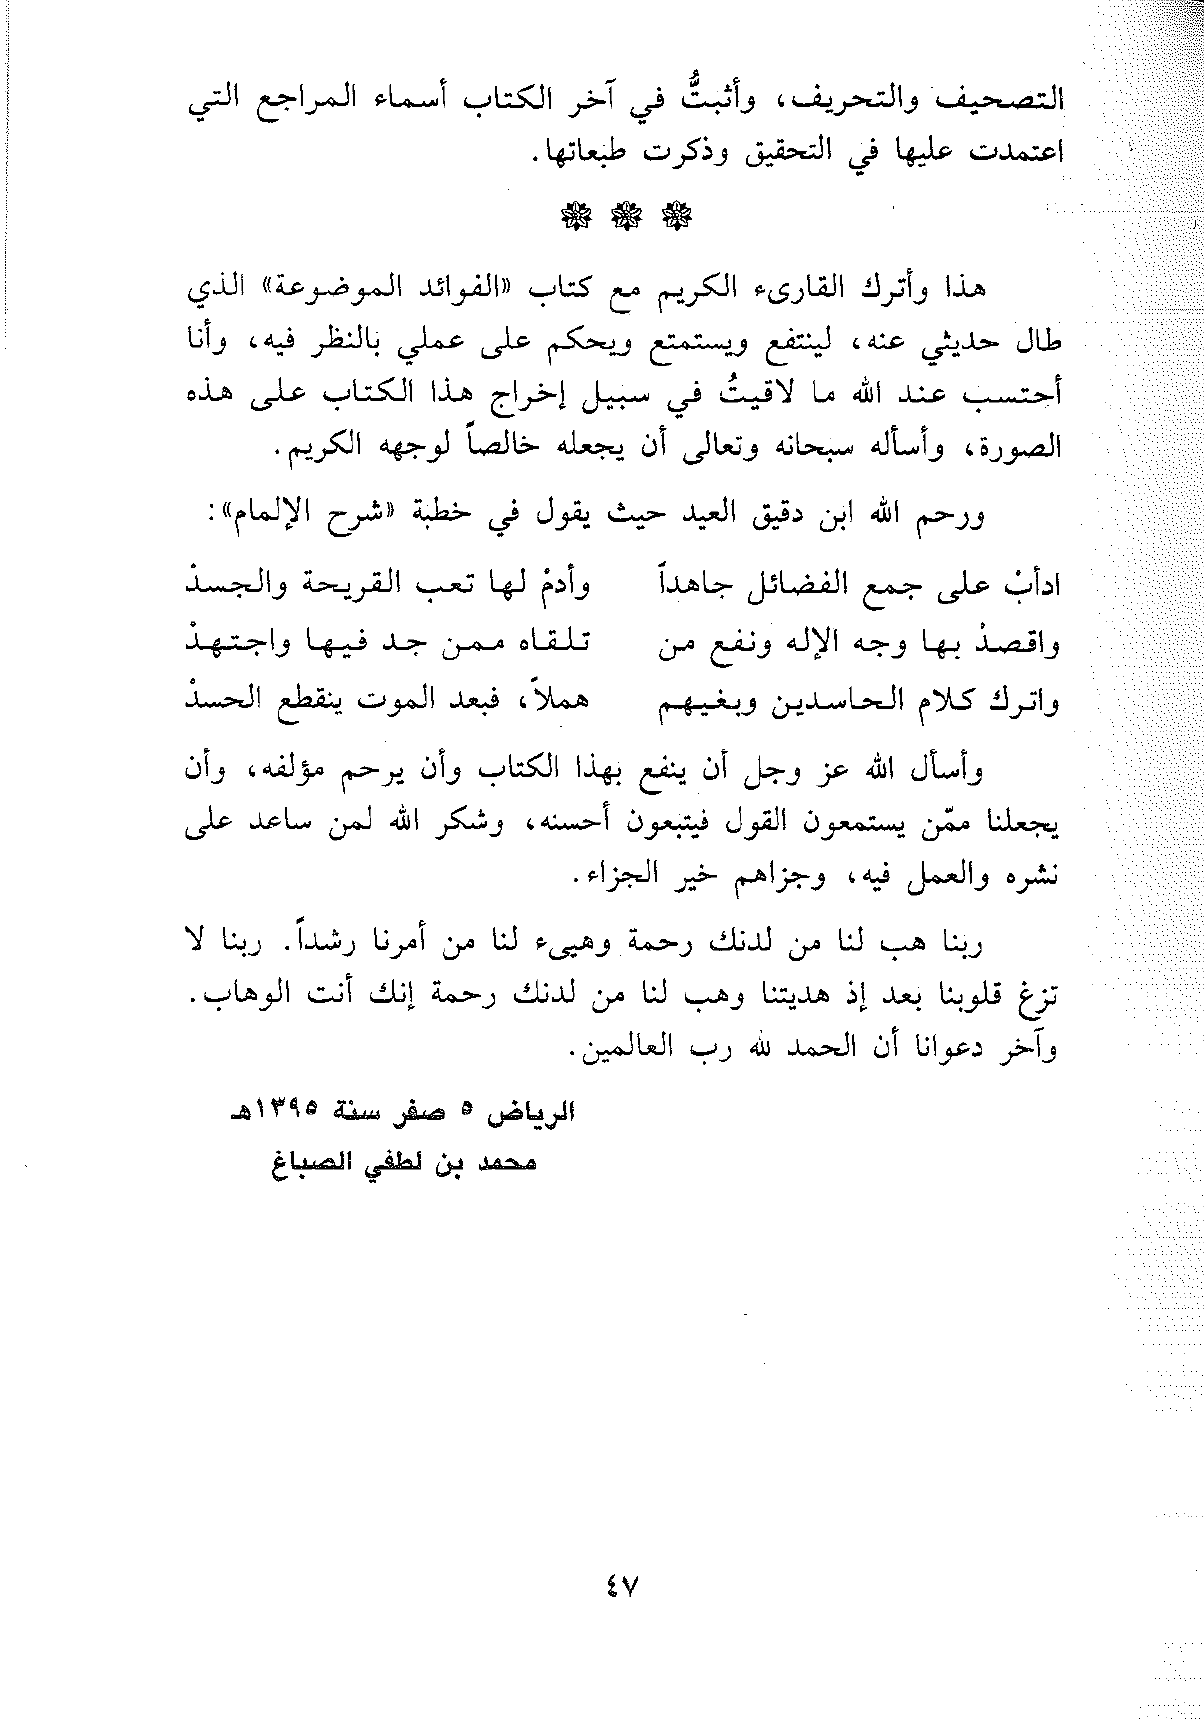 التصحيف والتحريف، وأثبتُّ في آخر الكتاب أسماء المراجع التي
اعتمدت عليها في التحقيق وذكرت طبعاتها.
هذا وأترك القارىء الكريم مع كتاب «الفوائد الموضوعة» الذي
طال حديثي عنه، لينتفع ويستمتع ويحكم على عملي بالنظر فيه، وأنا
أحتسب عند الله ما لاقيتُ في سبيل إخراج هذا الكتاب على هذه
الصورة، وأسأله سبحانه وتعالى أن يجعله خالصاً لوجهه الكريم.
ورحم الله ابن دقيق العيد حيث يقول في خطبة «شرح الإلمام»:
ادأبْ على جمع الفضائل جاهداً وأدمْ لها تعب القريحة والجسدْ
واقصدْ بها وجه الإله ونفع من تلقاه ممن جد فيها واجتهدْ
واترك كلام الحاسدين وبغيهم هملاً، فبعد الموت ينقطع الحسدْ
وأسأل الله عز وجل أن ينفع بهذا الكتاب وأن يرحم مؤلفه، وأن
يجعلنا ممّن يستمعون القول فيتبعون أحسنه، وشكر الله لمن ساعد على
نشره والعمل فيه، وجزاهم خير الجزاء.
ربنا هب لنا من لدنك رحمة وهيىء لنا من أمرنا رشداً. ربنا لا
تزغ قلوبنا بعد إذ هديتنا وهب لنا من لدنك رحمة إنك أنت الوهاب.
وآخر دعوانا أن الحمد لله رب العالمين.
الرياض ٥ صفر سنة ١٣٩٥هـ
محمد بن لطفي الصباغ
٤٧